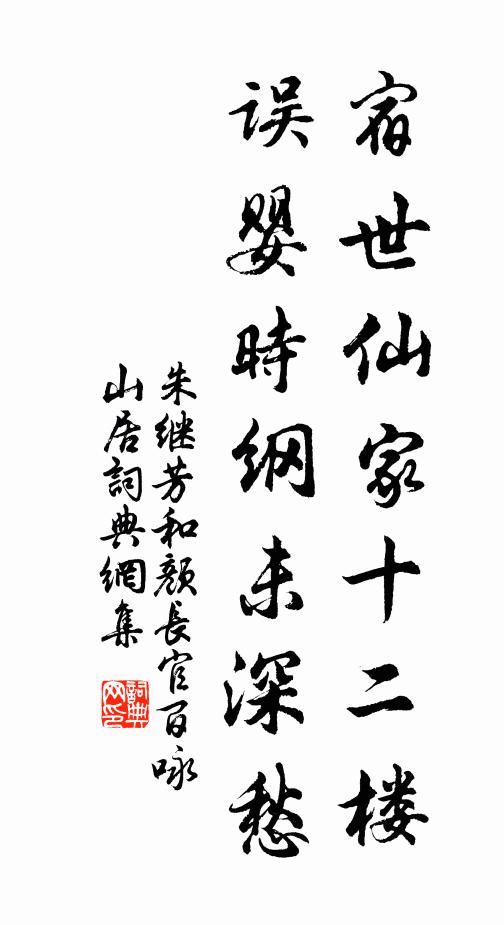 宿世仙家十二楼
误婴時纲未深愁
朱继芳和颜長官百咏
山居詞典網集
詞典
网印